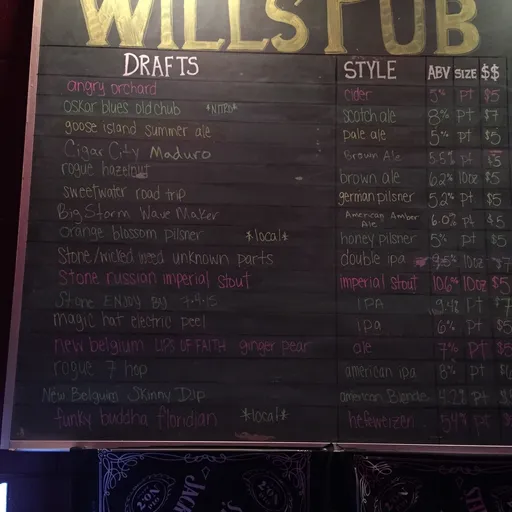 WILLS PUB
DRAFTS STYLE ABV SIZE $$
angry orchard cider 5% pt $5
oskar blues old chub *NITRO* scotch ale 8% pt $7
goose island summer ale pale ale 5% pt $5
Cigar City Maduro Brown Ale 5.5% pt $5
rogue hazelnut brown ale 6.2% 10oz $5
sweetwater road trip german pilsner 5.2% pt $5
Big Storm Wave Maker American Amber Ale 6.0% pt $5
orange blossom pilsner *local* honey pilsner 5% pt $5
Stone/wicked weed unknown parts double ipa 9.5% 10oz $7
Stone russian imperial stout imperial stout 10.6% 10oz $5
Stone ENJOY BY 7.4.15 IPA 9.4% pt $7
magic hat electric peel ipa 6% pt $5
new belgium LIPS OF FAITH ginger pear ale 7% pt $5
rogue 7 hop american ipa 8% pt
New Belguim Skinny Dip american Blonde 4.2% pt
funky buddha floridian *local* hefewerzen 5.4% pt